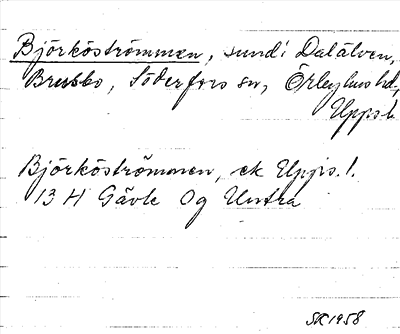 Björköströmmen, sund i Dalälven,
Brusbo, Söderfors sn, Örbyhus hd,
Upps. l.
Björköströmmen, ek Upps. l.
13 H Gävle Og Untra
SK 1958